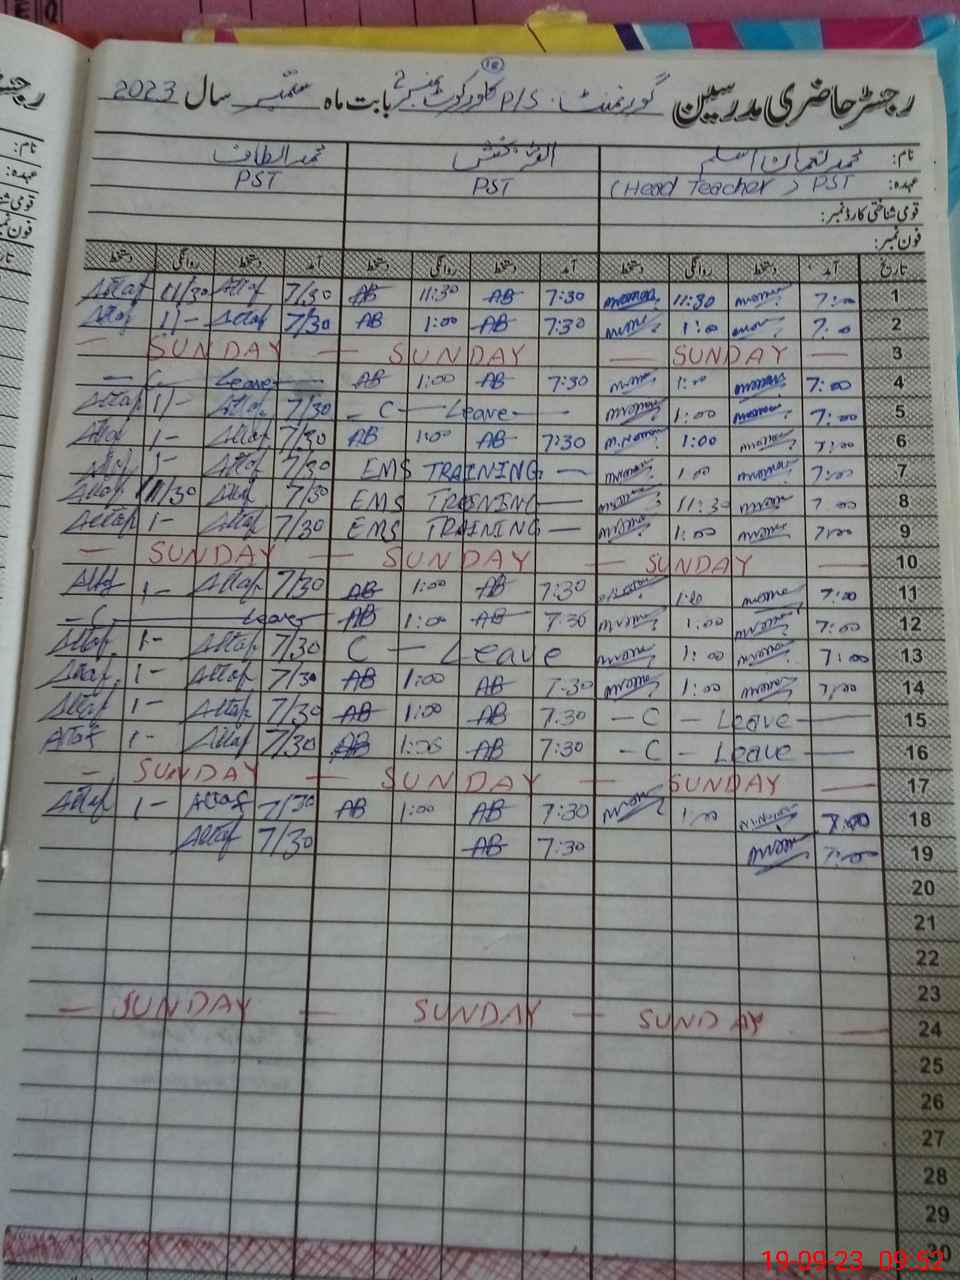 18
رجسٹر حاضری مدرسین گورنمنٹ P/S کلورکوٹ نمبر 2 بابت ماہ ستمبر سال 2023
نام: محمد نعمان اسلم الله بخش محمد الطاف
عہدہ: (Head Teacher) PST PST PST
قومی شناختی کارڈ نمبر:
فون نمبر:
تاریخ آمد دستخط روانگی دستخط آمد دستخط روانگی دستخط آمد دستخط روانگی دستخط
Altaf 11/30 Altaf 7/30 AB 11:30 AB 7:30 11:30 7:00 1
Altaf 1/- Altaf 7/30 AB 1:00 AB 7:30 1:00 7:00 2
— SUNDAY — SUNDAY — SUNDAY — 3
— C Leave — AB 1:00 AB 7:30 1:00 7:00 4
Altaf 1/- Altaf 7/30 — C — Leave — 1:00 7:00 5
Altaf 1- Altaf 7/30 AB 1:00 AB 7:30 1:00 7:00 6
Altaf 1- Altaf 7/30 EMS TRAINING — 1:00 7:00 7
Altaf 11/30 Altaf 7/30 EMS TRAINING — 11:30 7:00 8
Altaf 1- Altaf 7/30 EMS TRAINING — 1:00 7:00 9
— SUNDAY — SUNDAY — SUNDAY — 10
Altaf 1- Altaf 7/30 AB 1:00 AB 7:30 1:00 7:00 11
— C — Leave — AB 1:00 AB 7:30 1:00 7:00 12
Altaf 1- Altaf 7/30 C — Leave 1:00 7:00 13
Altaf 1- Altaf 7/30 AB 1:00 AB 7:30 1:00 7:00 14
Altaf 1- Altaf 7/30 AB 1:00 AB 7:30 — C — Leave — 15
Altaf 1- Altaf 7/30 AB 1:00 AB 7:30 — C — Leave — 16
— SUNDAY — SUNDAY — SUNDAY — 17
Altaf 1- Altaf 7/30 AB 1:00 AB 7:30 1:00 7:00 18
Altaf 7/30 AB 7:30 7:00 19
20
21
22
23
— SUNDAY — SUNDAY — SUNDAY — 24
25
26
27
28
29
30
19-09-23 09:52